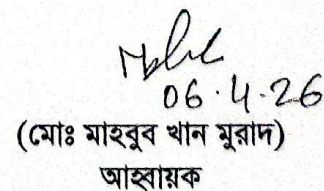 06.4.26
(মোঃ মাহবুব খান মুরাদ)
আহবায়ক